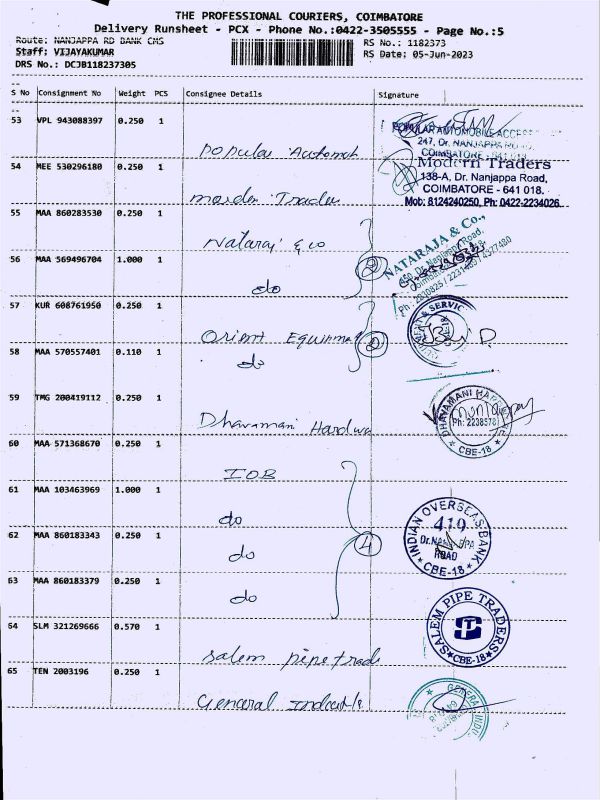 THE PROFESSIONAL COURIERS, COIMBATORE
Delivery Runsheet - PCX - Phone No.:0422-3505555 - Page No.:5
Route: NANJAPPA RD BANK CMS
RS No.: 1182373
Staff: VIJAYAKUMAR
RS Date: 05-Jun-2023
DRS No.: DCJB118237305
S No Consignment No Weight PCS Consignee Details Signature
53 VPL 943088397 0.250 1
Popular Automob
POPULAR AUTOMOBILE ACCESS
247, Dr. NANJAPPA ROAD.
COIMBATORE - 641 018
54 MEE 530296180 0.250 1
Morden Trades
Modern Traders
138-A, Dr. Nanjappa Road,
COIMBATORE - 641 018.
Mob: 8124240250, Ph: 0422-2234026
55 MAA 860283530 0.250 1
Nataraj & co
NATARAJA & Co.,
Dr. Nanjappa Road,
56 MAA 569496704 1.000 1
do
2
57 KUR 608761950 0.250 1
Orient Equipmat
& SERVIC
58 MAA 570557401 0.110 1
do
2
59 TMG 200419112 0.250 1
Dhavamani Hardwa
DHAVAMANI HARDWARE
Ph: 2238578
CBE-18
60 MAA 571368670 0.250 1
IOB
61 MAA 103463969 1.000 1
do
INDIAN OVERSEAS BANK
419
Dr. NANJAPPA
ROAD
CBE-18
62 MAA 860183343 0.250 1
do
4
63 MAA 860183379 0.250 1
do
64 SLM 321269666 0.570 1
Salem pipe trade
SALEM PIPE TRADERS
CBE-18
65 TEN 2003196 0.250 1
General Industle
GENERAL INDU